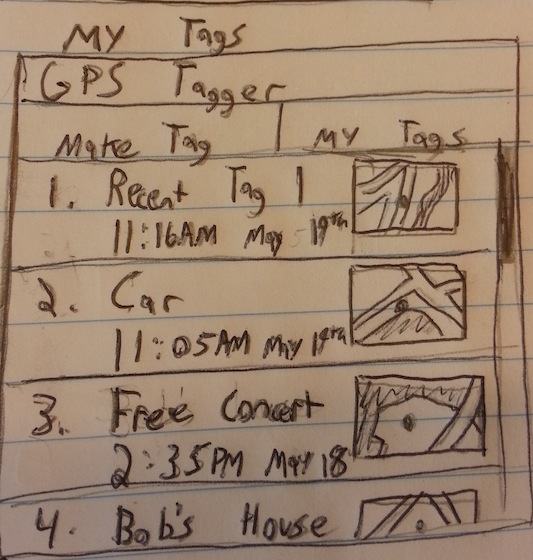 My Tags
GPS Tagger
Make Tag | My Tags
1. Recent Tag 1
11:16AM May 19th
2. Car
11:05AM May 19th
3. Free Concert
2:35PM May 18
4. Bob's House